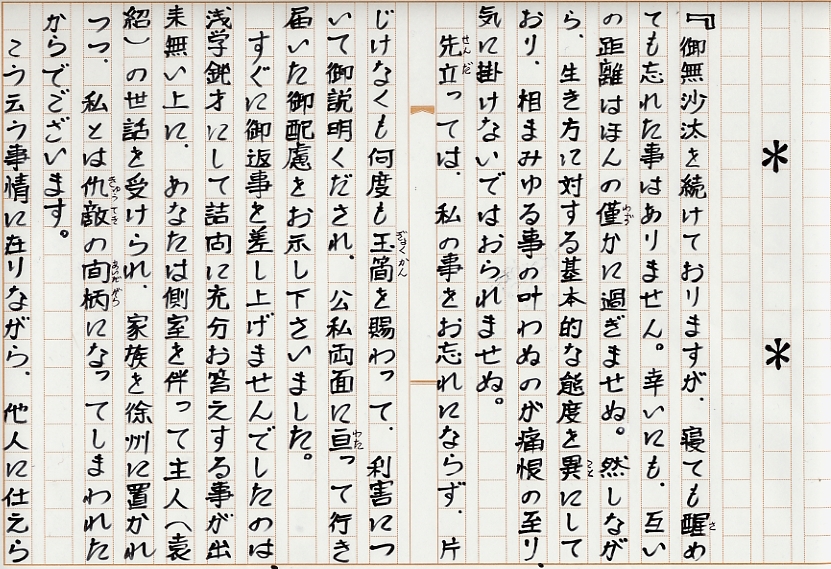 ＊　＊
『御無沙汰を続けておりますが、寝ても醒め
ても忘れた事はありません。幸いにも、互い
の距離はほんの僅かに過ぎませぬ。然しなが
ら、生き方に対する基本的な態度を異にして
おり、相まみゆる事の叶わぬのが痛恨の至り、
気に掛けないではおられませぬ。
先立っては、私の事をお忘れにならず、片
じけなくも何度も玉簡を賜わって、利害につ
いて御説明くだされ、公私両面に亘って行き
届いた御配慮をお示し下さいました。
すぐに御返事を差し上げませんでしたのは、
浅学鈍才にして詰問に充分お答えする事が出
来無い上に、あなたは側室を伴って主人へ袁
紹）の世話を受けられ、家族を徐州に置かれ
つつ、私とは仇敵の間柄になってしまわれた
からでございます。
こう云う事情に在りながら、他人に仕えら